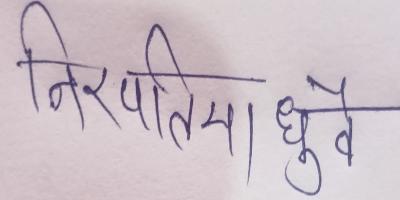 निरपतिया धुर्वे